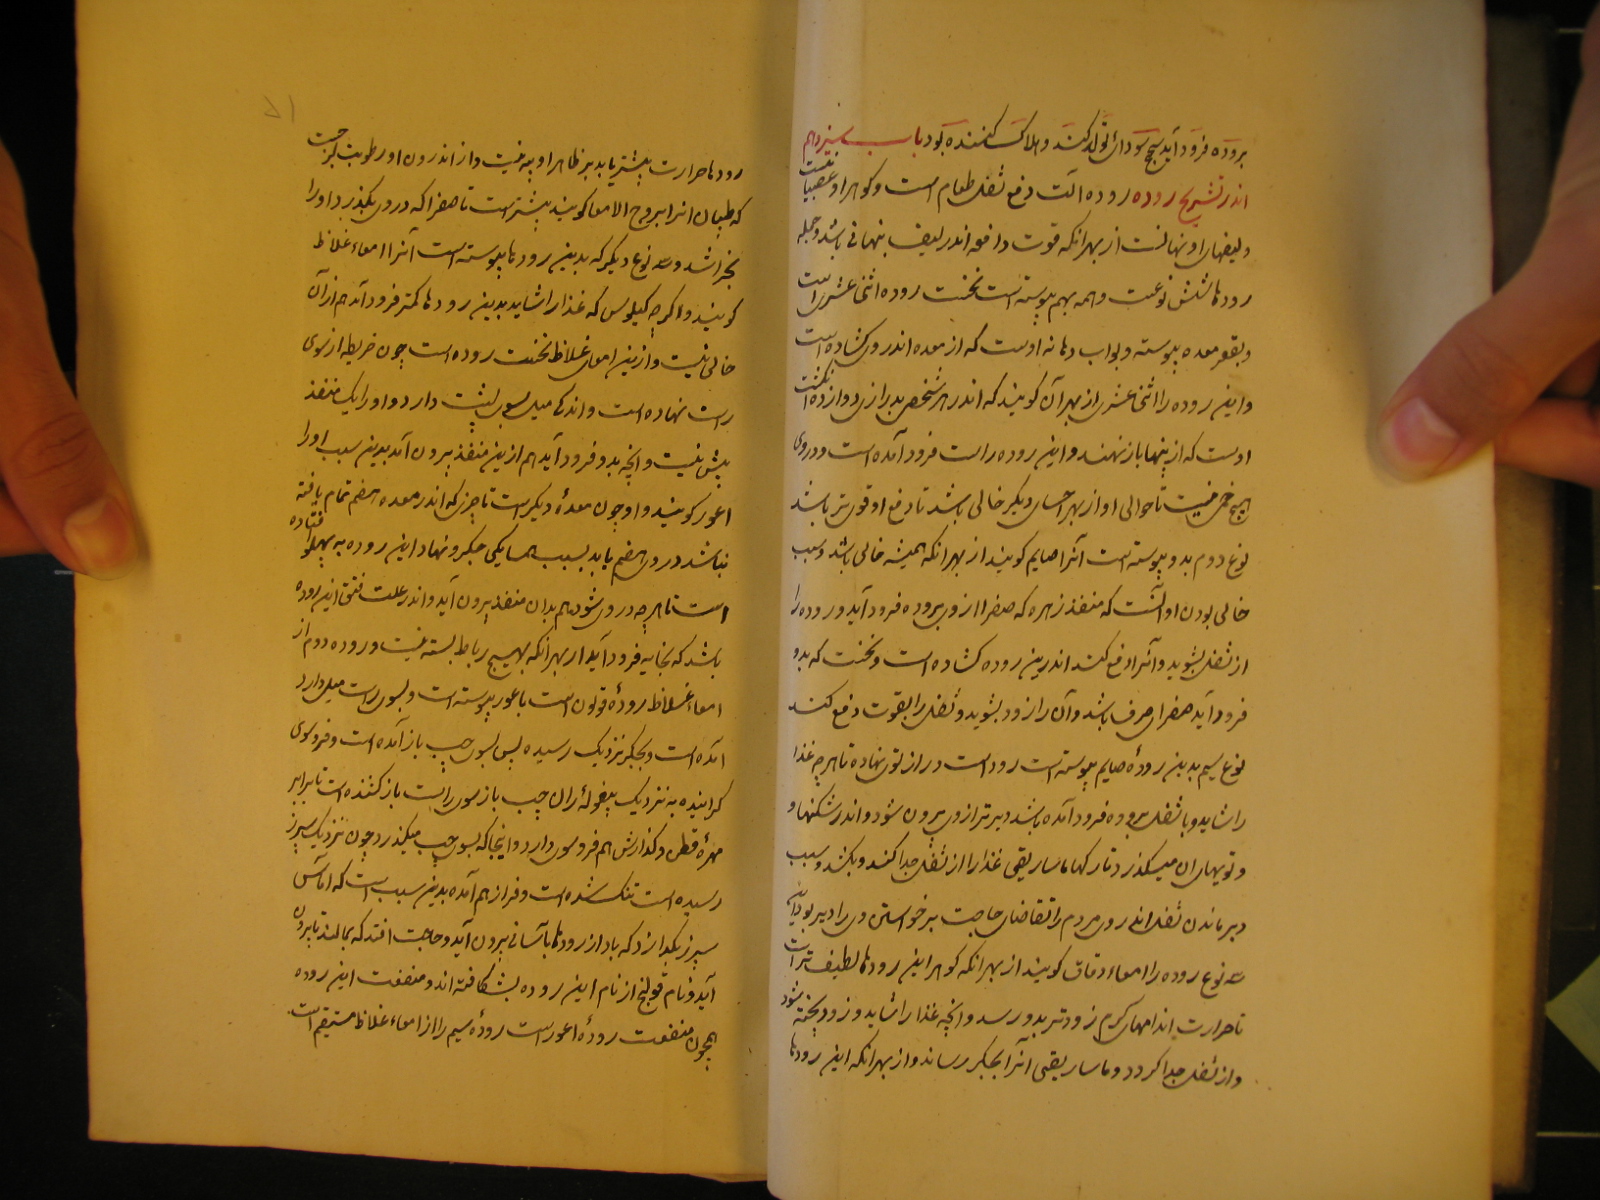 بروده فرود آید سحج سودائی تولد کند و هلاک کننده بود باب سیزدهم
اندر تشریح روده روده آلت دفع ثفل طعام است و گوهر او عصبیانیست
و لیفهای او پهنا است از بهر آنکه قوت دافعه اندر لیف پهنائی باشد و جمله
رودها شش نوعست و همه بهم پیوسته است نخست روده اثنی عشری است
و بقعر معده پیوسته و بواب دهانه اوست که از معده اندر وی کشاده است
و این روده را اثنی عشری از بهر آن کویند که اندر هر شخص بدرازی دوازده انکشت
اوست که از پهنا باز نهند و این روده راست فرود آمده است و در وی
هیچ خمی نیست تا حوالی او از بهر احشای دیکر خالی باشد تا دفع او قوی تر باشد
نوع دوم بدو پیوسته است آنرا صایم کویند از بهر آنکه همیشه خالی باشد و سبب
خالی بودن او آنست که منفذ زهره که صفرا از وی بروده فرود آید و روده را
از ثفل بشوید و آنرا دفع کند اندرین روده کشاده است و نخست که بدو
فرود آید صفرای صرف باشد و آن را زود بشوید و ثفل را بقوت دفع کند
نوع سیم بدین رودۀ صایم پیوسته است روداست دراز توی نهاده تا هرچه غذا
را شاید و با ثفل بروده فرود آمده باشد دیرتر از وی بیرون شود و اندر شکنها و
و تویهای آن میکذرد تا رکها ماساریقی غذا را از ثفل جدا کند و بکشد و سبب
دیر ماندن ثفل اندر وی مردم را تقاضای حاجت برخواستن وی را دیر بود این
سه نوع روده را امعاء دقاق کویند از بهر آنکه کوهر این رودها لطیف تر است
تا حرارت اندامهای کرم زودتر بدو رسد و آنچه غذا را شاید و زود پخته شود
و از ثفل جدا کردد و ماساریقی آنرا بجکر رساند و از بهر آنکه این رودها
رودها حرارت بیشتر یابد بر ظاهر او پیه نیست و از اندرون او رطوبت لزجست
که طبیبان انرا لزوج الامعا کویند بیشتر است تا صفرا که در وی بکذرد او را
نخراشد و سه نوع دیکر که بدین رودها پیوسته است آنرا امعاء غلاظ
کویند و اکرچه کیلوس که غذا را شاید بدین رودها کمتر فرود آید هم از آن
خالی نیست و ازین امعای غلاظ نخست روده است چون خریطه از سوی
راست نهاده است و اندکی میل بسوی پشت دارد و او را یک منفذ
بیش نیست و انچه بدو فرود آید هم ازین منفذ بیرون آید بدین سبب او را
اعور کویند و او چون معدۀ دیکر است تا چیزی که اندر معده هضم تمام یافته
نباشد در وی هضم یابد بسبب همسایکی جکر و نهاد این روده به پهلو افتاده
است تا هرچه در وی شود هم بدان منفذ بیرون آید و اندر علت فتق این روده
باشد که بخایه فرود آید از بهر آنکه بهیچ رباط بسته نیست و روده دوم از
امعاء غلاظ رودۀ قولون است با عور پیوسته است و بسوی راست میل دارد
آمده است و بجکر نزدیک رسیده پس بسوی چپ باز آمده است و فرو سوی
کراینده به نزدیک بیغولۀ ران چپ باز سوی راست باز کشنده است تا برابر
مهرۀ قطن و کذارش هم فرو سوی دارد و اینجا که بسوی چپ میکذرد چون نزدیک سپرز
رسیده است تنک شده است و فراز هم آمده بدین سبب است که آماس
سپرز نکذارد که باد از رودها بآسانی بیرون آید و حاجت افتد که بمالند تا بیرون
آید و نام قولنج از نام این روده بشکافته اند و منفعت این روده
همچون منفعت رودۀ اعور است رودۀ سیم را از امعاء غلاظ مستقیم است